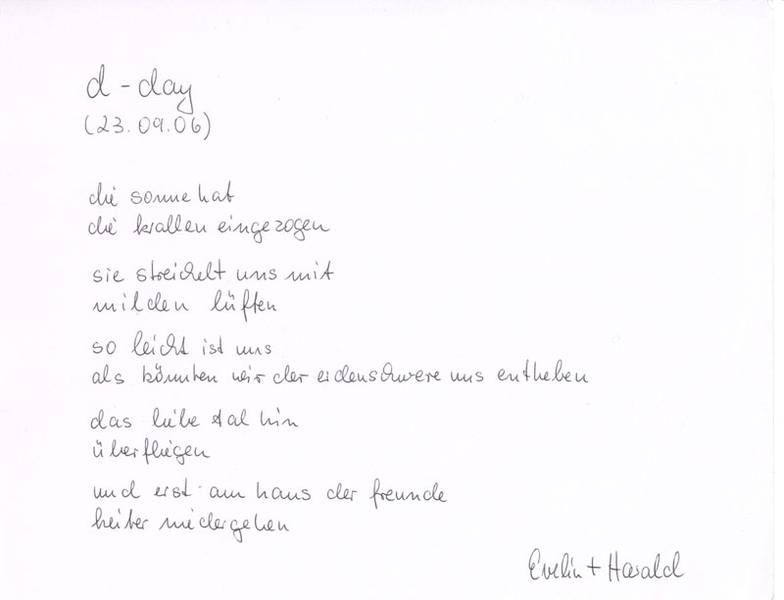 d-day
(23.09.06)
die sonne hat
die krallen eingezogen
sie streichelt uns mit
milden lüften
so leicht ist uns
als könnten wir der erdenschwere uns entheben
das liebe tal hin
überfliegen
und erst am haus der freunde
heiter niedergehen
Evelin + Harald